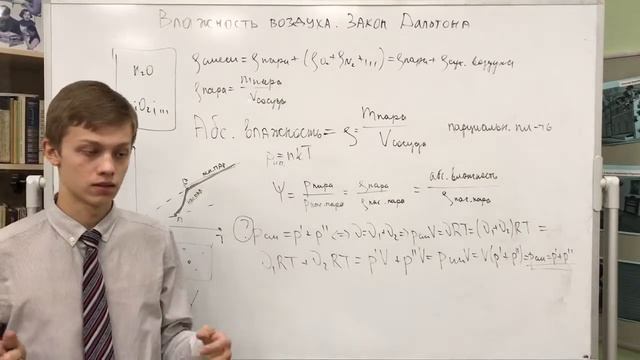 Влажность воздуха. Закон Дальтона
H₂O
O₂, ...
ρсмеси = ρпара + (ρO₂ + ρN₂ + ...) = ρпара + ρсух. воздуха
ρпара = mпара / Vсосуда
Абс. влажность = ρ = mпара / Vсосуда парциальн. пл-ть
p = nkT
φ = pпара / pнас.пара = ρпара / ρнас.пара = абс. влажность / ρнас.пара
? pсм = p' + p'' <=> ν = ν₁ + ν₂ => pсмV = νRT = (ν₁ + ν₂)RT =
ν₁RT + ν₂RT = p'V + p''V = pсмV = V(p' + p'') => pсм = p' + p''